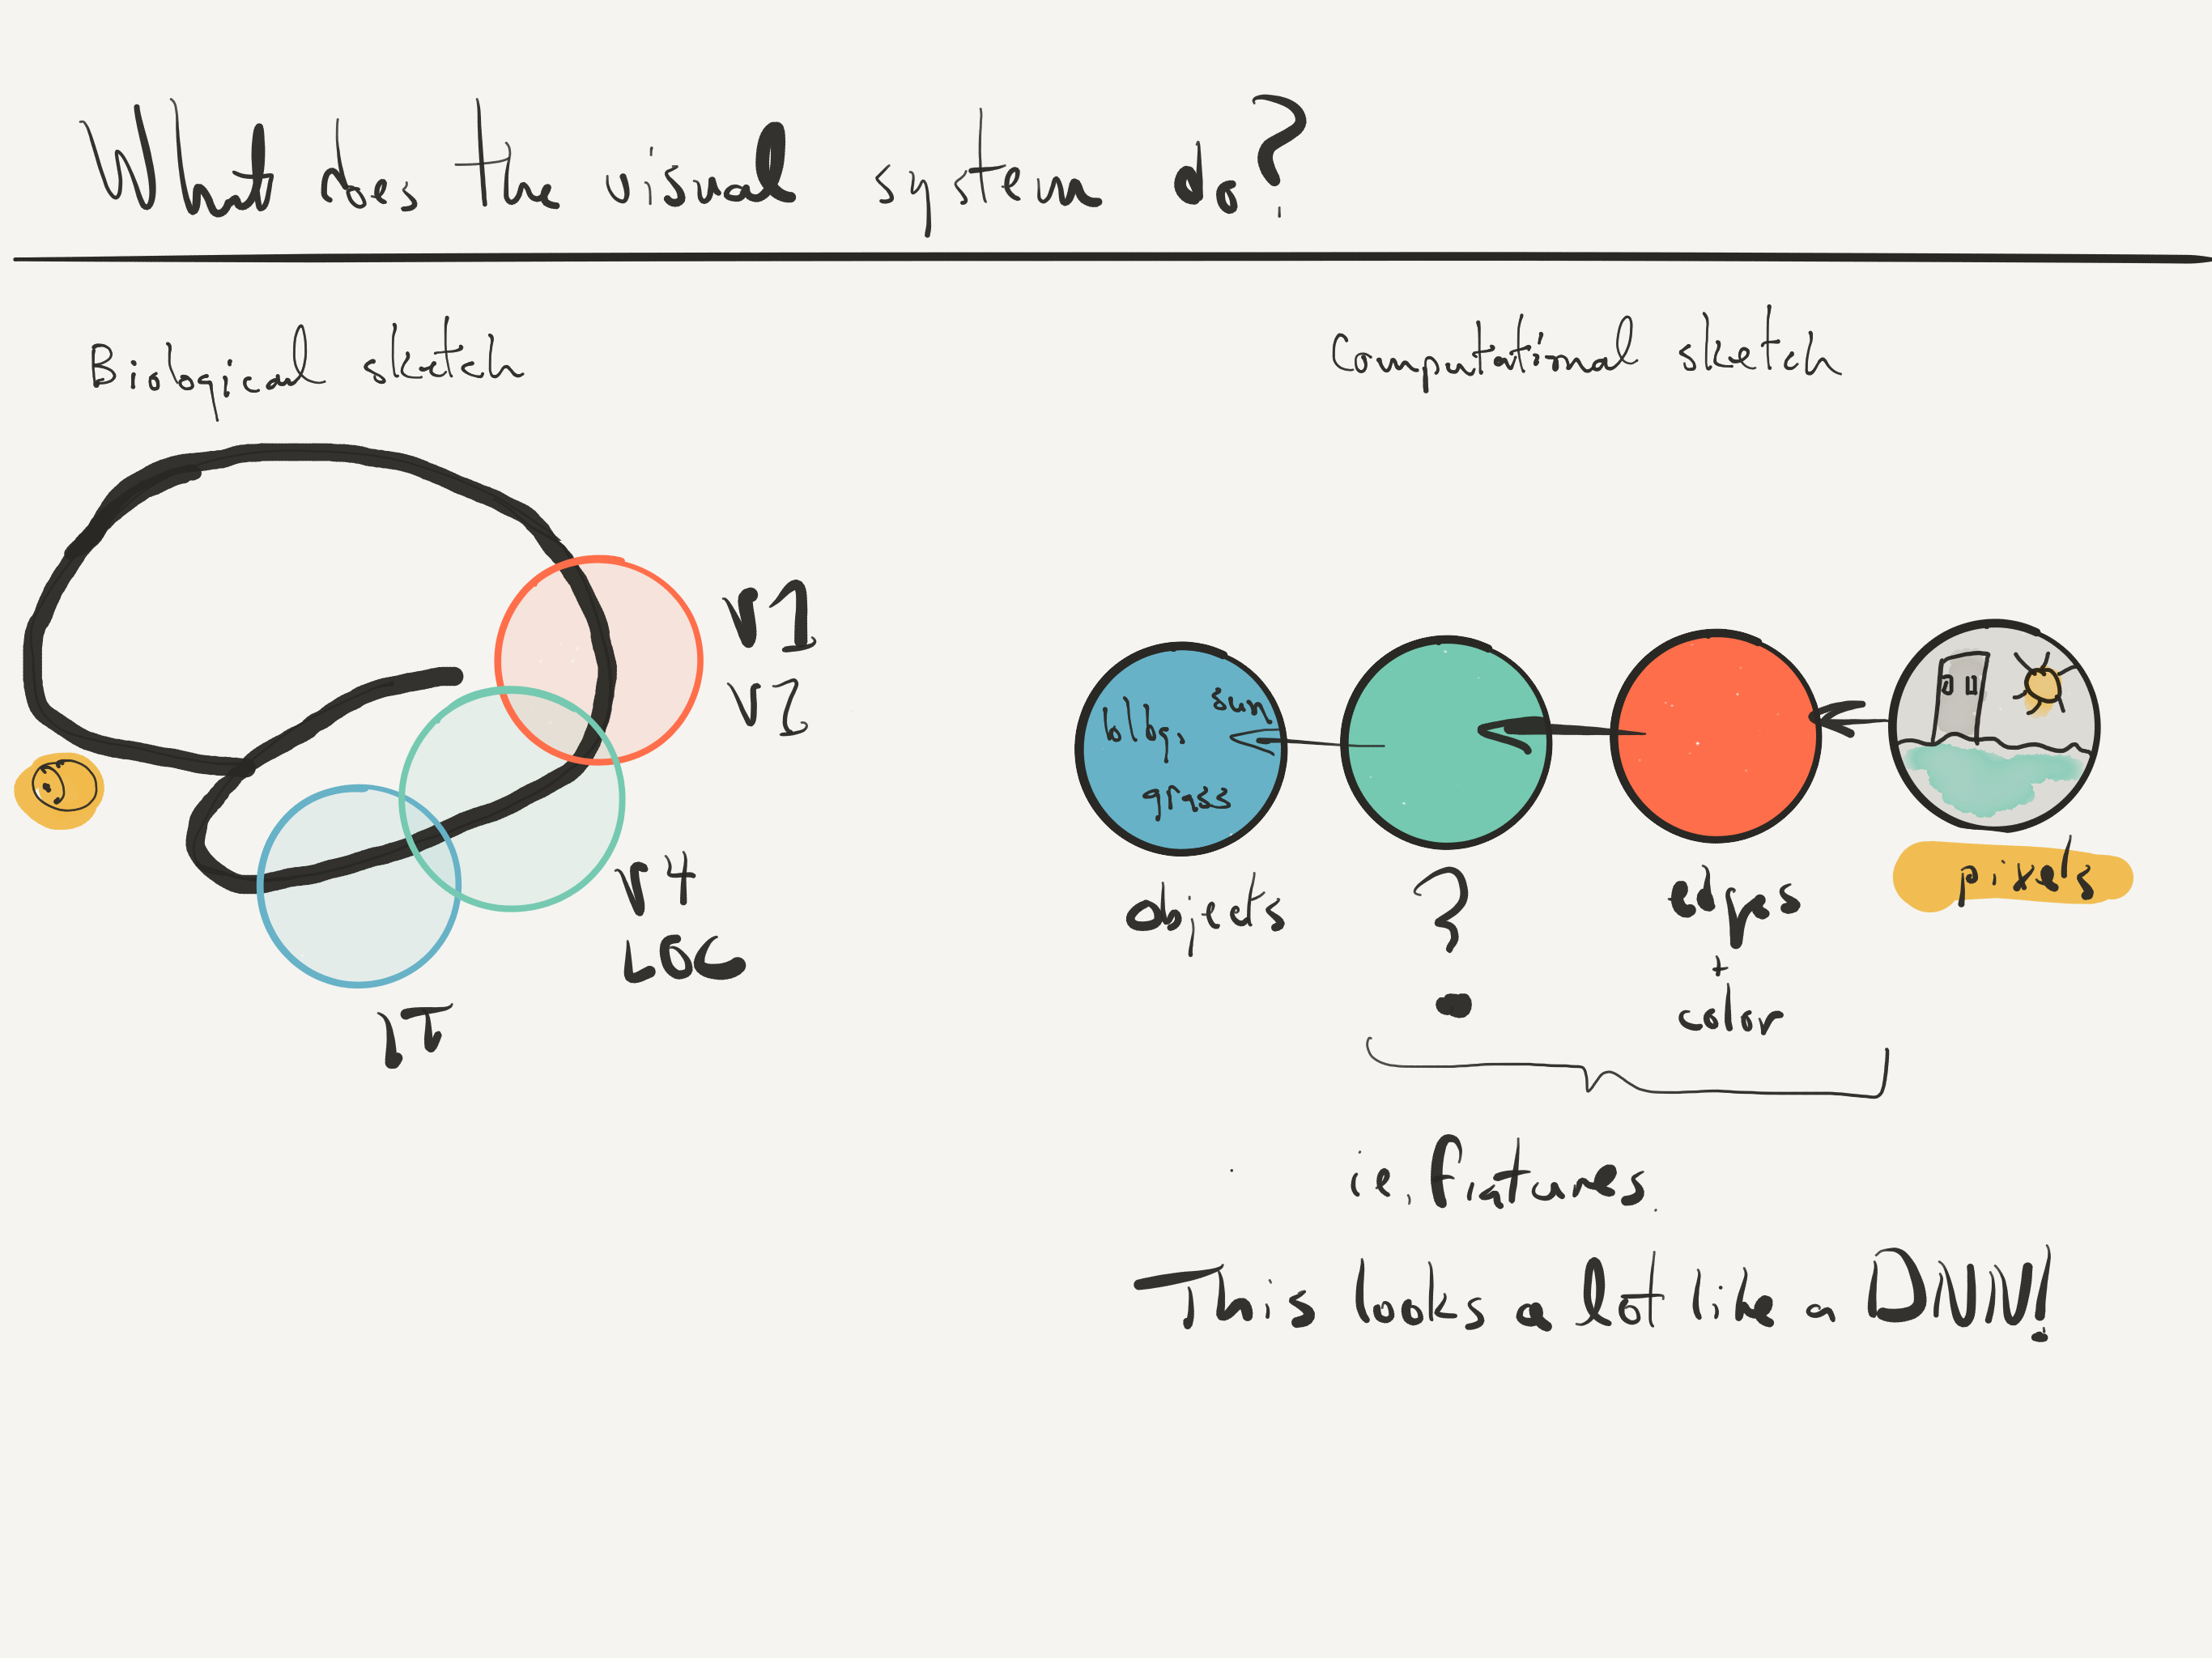 What does the visual system do?
Biological sketch
Computational sketch
V1
V2
V4
LOC
IT
sun
grass
objects
?
edges
+
color
pixels
ie. features.
This looks a lot like a DNN!